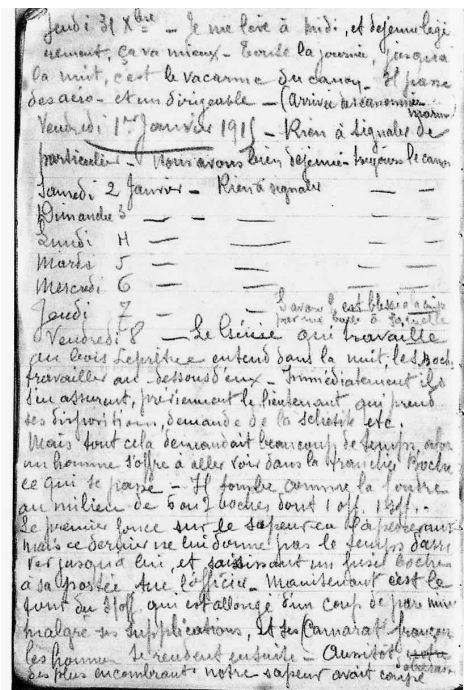 Jeudi 31 Xbre - Je me lève à midi, et dejeune légè
rement, ça va mieux - Toute la journée, jusqu'à
la nuit, c'est le vacarme du canon - Il passe
des aéro - et un dirigeable - (Arrivée des canonniers
marins)
Vendredi 1er Janvier 1915 - Rien à signaler de
particulier - Nous avons bien dejeuné - toujours le canon
Samedi 2 Janvier - Rien à signaler — —
Dimanche 3 — — — —
Lundi 4 — — — —
Mardi 5 — — — —
Mercredi 6 — — — —
Jeudi 7 — — est blessé
par une balle à
Vendredi 8 - Le Génie qui travaille
au bois Leprêtre entend dans la nuit, les Boch.
travailler au-dessous d'eux - Immédiatement ils
s'en assurent, préviennent le lieutenant qui prend
ses dispositions, demande de la schesite etc.
Mais tout cela demandait beaucoup de temps, alors
un homme s'offre à aller voir dans la tranchée Boche
ce qui se passe - Il tombe comme la foudre
au milieu de 6 ou 7 boches dont 1 off. 1 s/off. -
Le premier fonce sur le sapeur
mais ce dernier ne lui donne pas le temps d'arri
ver jusqu'à lui, et saisissant un fusil boche
à sa portée tue l'officier - Maintenant c'est le
tour du s/off. qui est allongé d'un coup de
malgré ses supplications, et ses (Camarat' françou
les hommes se rendent ensuite - Aussitôt
des plus encombrant notre sapeur avait coupé